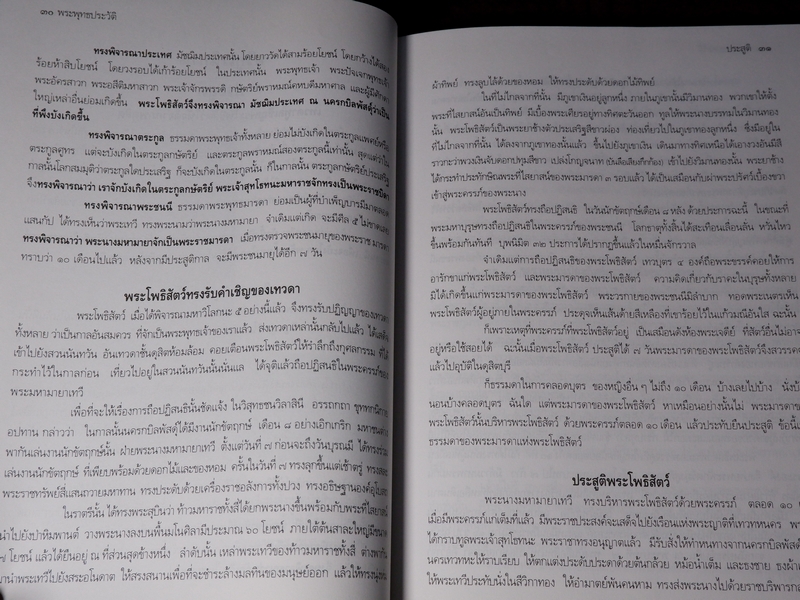 ๓๐ พระพุทธประวัติ
ทรงพิจารณาประเทศ มัชฌิมประเทศนั้น โดยยาววัดได้สามร้อยโยชน์ โดยกว้างได้สอง
ร้อยห้าสิบโยชน์ โดยวงรอบได้เก้าร้อยโยชน์ ในประเทศนั้น พระพุทธเจ้า พระปัจเจกพุทธเจ้า
พระอัครสาวก พระอสีติมหาสาวก พระเจ้าจักรพรรดิ กษัตริย์พราหมณ์คหบดีมหาศาล และผู้มีศักดิ์
ใหญ่เหล่าอื่นย่อมเกิดขึ้น พระโพธิสัตว์จึงทรงพิจารณา มัชฌิมประเทศ ณ นครกบิลพัสดุ์ว่าเป็น
ที่พึงบังเกิดขึ้น
ทรงพิจารณาตระกูล ธรรมดาพระพุทธเจ้าทั้งหลาย ย่อมไม่บังเกิดในตระกูลแพศย์หรือ
ตระกูลศูทร แต่จะบังเกิดในตระกูลกษัตริย์ และตระกูลพราหมณ์สองตระกูลนี้เท่านั้น สุดแต่ว่าใน
กาลนั้นโลกสมมุติว่าตระกูลใดประเสริฐ ก็จะบังเกิดในตระกูลนั้น ก็ในกาลนั้น ตระกูลกษัตริย์ประเสริฐ
จึงทรงพิจารณาว่า เราจักบังเกิดในตระกูลกษัตริย์ พระเจ้าสุทโธทนะมหาราชจักทรงเป็นพระราชบิดา
ทรงพิจารณาพระชนนี ธรรมดาพระพุทธมารดา ย่อมเป็นผู้ที่บำเพ็ญบารมีมาตลอด
แสนกัป ได้ทรงเห็นว่าพระเทวี ทรงพระนามว่าพระนางมหามายา จำเดิมแต่เกิด จะมีศีล ๕ ไม่ขาดเลย
ทรงพิจารณาว่า พระนางมหามายาจักเป็นพระราชมารดา เมื่อทรงตรวจพระชนมายุของพระราชมารดา
ทราบว่า ๑๐ เดือนไปแล้ว หลังจากมีประสูติกาล จะมีพระชนมายุได้อีก ๗ วัน
พระโพธิสัตว์ทรงรับคำเชิญของเทวดา
พระโพธิสัตว์ เมื่อได้พิจารณามหาวิโลกนะ ๕ อย่างนี้แล้ว จึงทรงรับปฏิญญาของเทวดา
ทั้งหลาย ว่าเป็นกาลอันสมควร ที่จักเป็นพระพุทธเจ้าของเราแล้ว ส่งเทวดาเหล่านั้นกลับไปแล้ว ได้เสด็จ
เข้าไปยังสวนนันทวัน อันเทวดาชั้นดุสิตห้อมล้อม คอยเตือนพระโพธิสัตว์ให้รำลึกถึงกุศลกรรม ที่ได้
กระทำไว้ในกาลก่อน เที่ยวไปอยู่ในสวนนันทวันนั้นนั่นแล ได้จุติแล้วถือปฏิสนธิในพระครรภ์ของ
พระมหามายาเทวี
เพื่อที่จะให้เรื่องการถือปฏิสนธินั้นชัดแจ้ง ในวิสุทธชนวิลาสินี อรรถกถา ขุททกนิกาย
อปทาน กล่าวว่า ในกาลนั้นนครกบิลพัสดุ์ได้มีงานนักขัตฤกษ์ เดือน ๘ อย่างเอิกเกริก มหาชน
พากันเล่นงานนักขัตฤกษ์นั้น ฝ่ายพระนางมหามายาเทวี ตั้งแต่วันที่ ๗ ก่อนจะถึงวันบุรณมี ได้ทรงร่วม
เล่นงานนักขัตฤกษ์ ที่เพียบพร้อมด้วยดอกไม้และของหอม ครั้นในวันที่ ๗ ทรงลุกขึ้นแต่เช้าตรู่ ทรงสละ
พระราชทรัพย์สี่แสนถวายมหาทาน ทรงประดับด้วยเครื่องราชอลังการทั้งปวง ทรงอธิษฐานองค์อุโบสถ
ในราตรีนั้น ได้ทรงพระสุบินว่า ท้าวมหาราชทั้งสี่ได้ยกพระนางขึ้นพร้อมกับพระที่ไสยาสน์
นำไปยังป่าหิมพานต์ วางพระนางลงบนพื้นมโนศิลามีประมาณ ๖๐ โยชน์ ภายใต้ต้นสาละใหญ่มีขนาด
๗ โยชน์ แล้วได้ยืนอยู่ ณ ที่ส่วนสุดข้างหนึ่ง ลำดับนั้น เหล่าพระเทวีของท้าวมหาราชทั้งสี่ ต่างพากัน
มานำพระเทวีไปยังสระอโนดาต ให้สรงสนานเพื่อที่จะชำระล้างมลทินของมนุษย์ออก แล้วให้ทรงนุ่งห่ม
ประสูติ ๓๑
ผ้าทิพย์ ทรงลูบไล้ด้วยของหอม ให้ทรงประดับด้วยดอกไม้ทิพย์
ในที่ไม่ไกลจากที่นั้น มีภูเขาเงินอยู่ลูกหนึ่ง ภายในภูเขานั้นมีวิมานทอง พวกเขาให้ตั้ง
พระที่ไสยาสน์อันเป็นทิพย์ มีเบื้องพระเศียรอยู่ทางทิศตะวันออก ทูลให้พระนางบรรทมในวิมานทอง
นั้น พระโพธิสัตว์เป็นพระยาช้างตัวประเสริฐสีขาวผ่อง ท่องเที่ยวไปในภูเขาทองลูกหนึ่ง ซึ่งมีอยู่ใน
ที่ไม่ไกลจากที่นั้น ได้ลงจากภูเขาทองนั้นแล้ว ขึ้นไปยังภูเขาเงิน เดินมาทางทิศเหนือได้เอางวงอันมีสี
ราวกะว่าพวงเงินจับดอกปทุมสีขาว เปล่งโกญจนาท (บันลือเสียงกึกก้อง) เข้าไปยังวิมานทองนั้น พระยาช้าง
ได้กระทำประทักษิณพระที่ไสยาสน์ของพระมารดา ๓ รอบแล้ว ได้เป็นเสมือนกับผ่าพระปรัศว์เบื้องขวา
เข้าสู่พระครรภ์ของพระนาง
พระโพธิสัตว์ทรงถือปฏิสนธิ ในวันนักขัตฤกษ์เดือน ๘ หลัง ด้วยประการฉะนี้ ในขณะที่
พระมหาบุรุษทรงถือปฏิสนธิในพระครรภ์ของพระชนนี โลกธาตุทั้งสิ้นได้สะเทือนเลื่อนลั่น หวั่นไหว
ขึ้นพร้อมกันทันที บุพนิมิต ๓๒ ประการได้ปรากฏขึ้นแล้วในหมื่นจักรวาล
จำเดิมแต่การถือปฏิสนธิของพระโพธิสัตว์ เทวบุตร ๔ องค์ถือพระขรรค์คอยให้การ
อารักขาแก่พระโพธิสัตว์ และพระมารดาของพระโพธิสัตว์ ความคิดเกี่ยวกับราคะในบุรุษทั้งหลาย
มิได้เกิดขึ้นแก่พระมารดาของพระโพธิสัตว์ พระวรกายของพระชนนีมิลำบาก ทอดพระเนตรเห็น
พระโพธิสัตว์ผู้อยู่ภายในพระครรภ์ ประดุจเห็นเส้นด้ายสีเหลืองที่เขาร้อยไว้ในแก้วมณีอันใส ฉะนั้น
ก็เพราะเหตุที่พระครรภ์ที่พระโพธิสัตว์อยู่ เป็นเสมือนดังห้องพระเจดีย์ ที่สัตว์อื่นไม่อาจ
อยู่หรือใช้สอยได้ ฉะนั้นเมื่อพระโพธิสัตว์ ประสูติได้ ๗ วันพระมารดาของพระโพธิสัตว์จึงสวรรคต
แล้วไปอุบัติในดุสิตบุรี
ก็ธรรมดาในการคลอดบุตร ของหญิงอื่น ๆ ไม่ถึง ๑๐ เดือน บ้างเลยไปบ้าง นั่งบ้าง
นอนบ้างคลอดบุตร ฉันใด แต่พระมารดาของพระโพธิสัตว์ หาเหมือนอย่างนั้นไม่ พระมารดาของ
พระโพธิสัตว์นั้นบริหารพระโพธิสัตว์ ด้วยพระครรภ์ตลอด ๑๐ เดือน แล้วประทับยืนประสูติ ข้อนี้เป็น
ธรรมดาของพระมารดาแห่งพระโพธิสัตว์
ประสูติพระโพธิสัตว์
พระนางมหามายาเทวี ทรงบริหารพระโพธิสัตว์ด้วยพระครรภ์ ตลอด ๑๐
เมื่อมีพระครรภ์แก่เต็มที่แล้ว มีพระราชประสงค์จะเสด็จไปยังเรือนแห่งพระญาติที่เทวทหนคร
ได้กราบทูลพระเจ้าสุทโธทนะ พระราชาทรงอนุญาตแล้ว มีรับสั่งให้ทำหนทางจากนครกบิลพัสดุ์
นครเทวทหะให้ราบเรียบ ให้ตกแต่งประดับประดาด้วยต้นกล้วย หม้อน้ำเต็ม และธงชาย
ให้พระเทวีประทับนั่งในสีวิกาทอง ให้อำมาตย์พันคนหาม ทรงส่งพระนางไปด้วยราชบริพาร